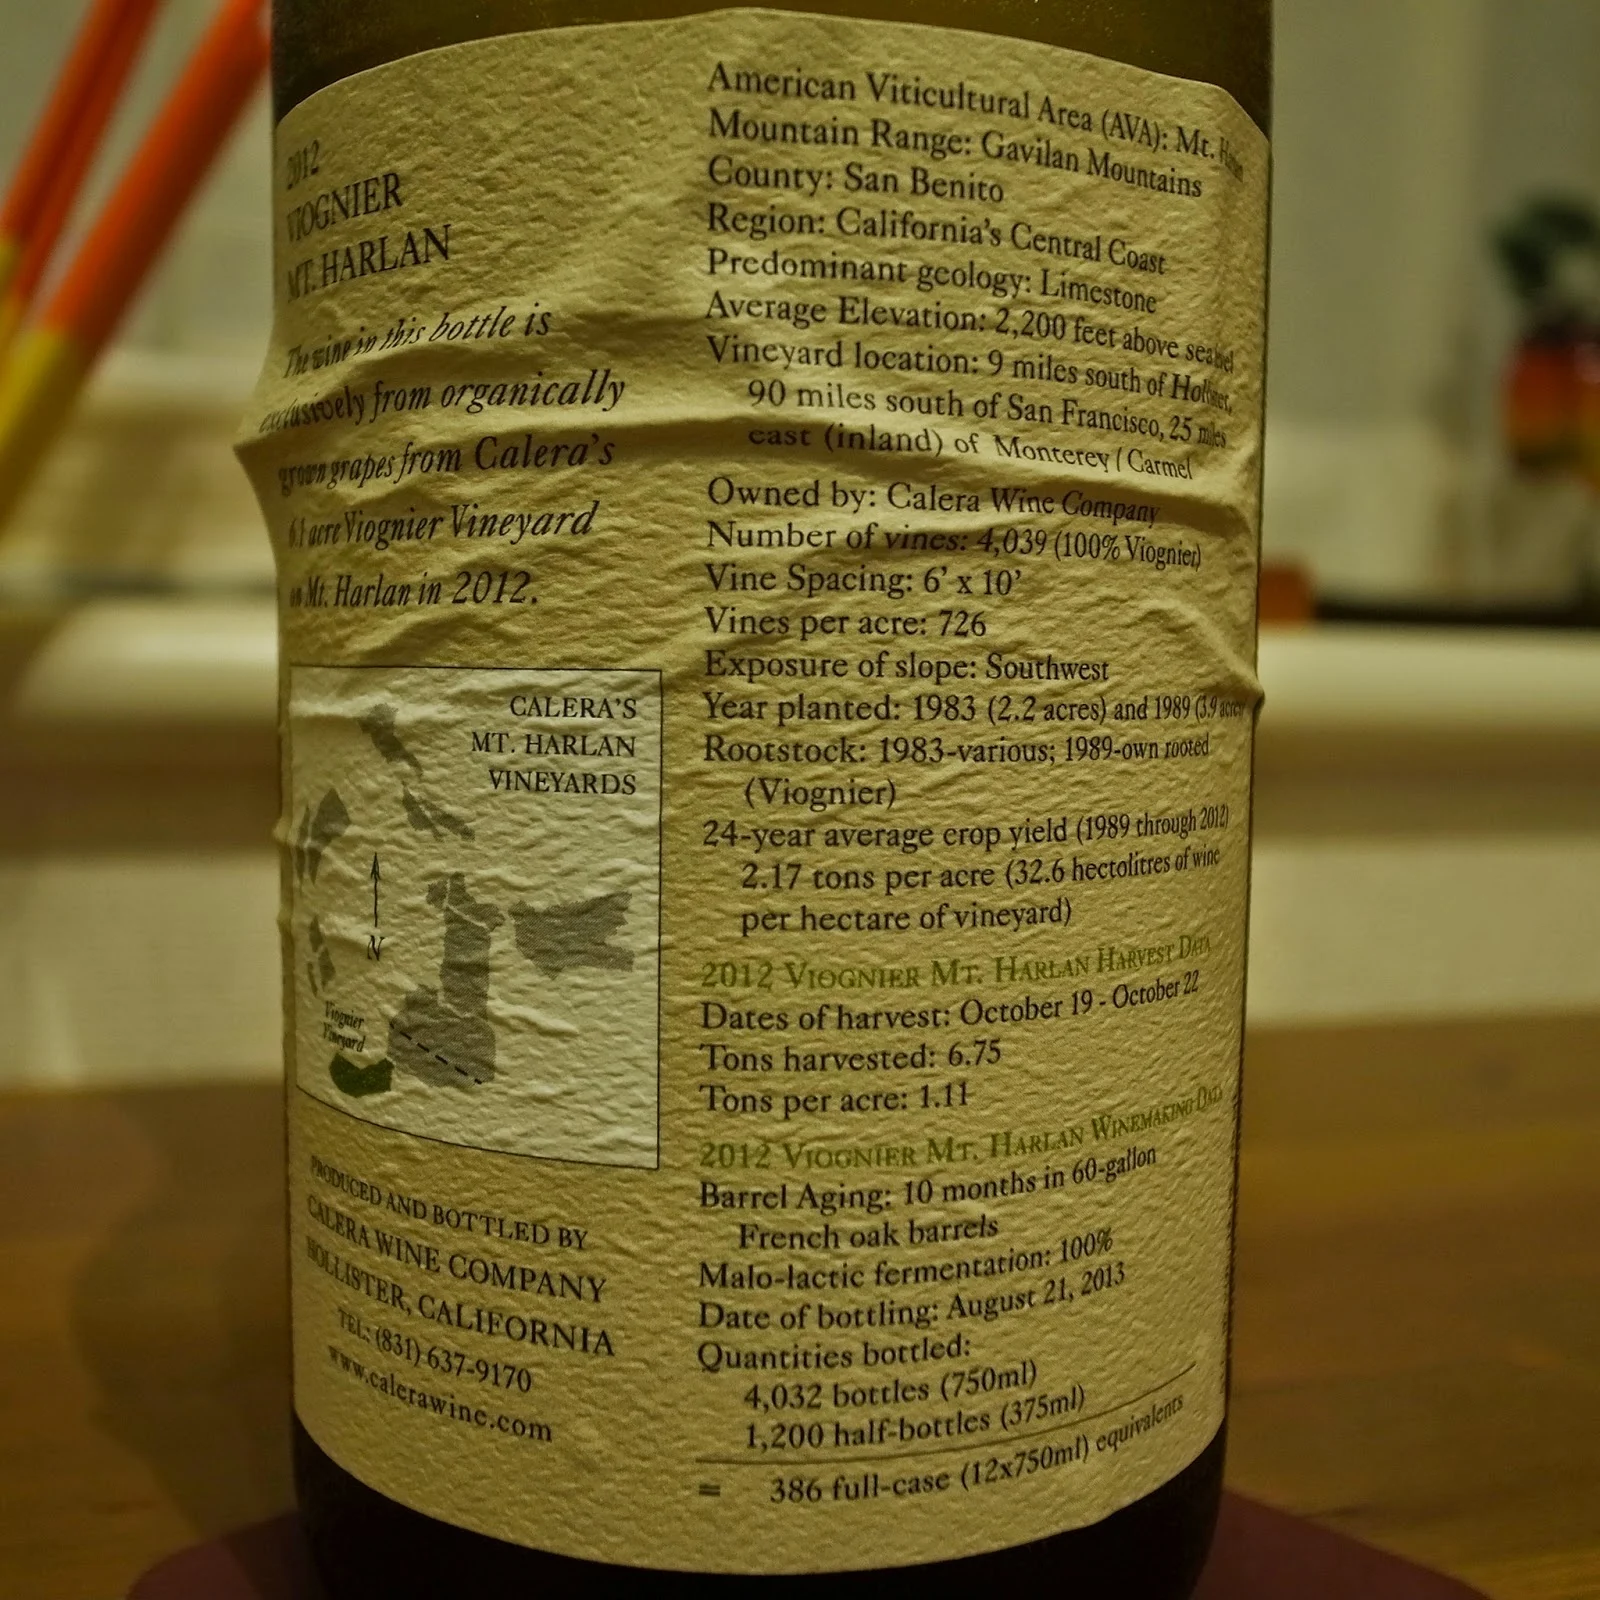 2012
VIOGNIER
MT. HARLAN
The wine in this bottle is
exclusively from organically
grown grapes from Calera's
6.1 acre Viognier Vineyard
on Mt. Harlan in 2012.
CALERA'S
MT. HARLAN
VINEYARDS
N
Viognier
Vineyard
PRODUCED AND BOTTLED BY
CALERA WINE COMPANY
HOLLISTER, CALIFORNIA
TEL: (831) 637-9170
www.calerawine.com
American Viticultural Area (AVA): Mt. Harlan
Mountain Range: Gavilan Mountains
County: San Benito
Region: California's Central Coast
Predominant geology: Limestone
Average Elevation: 2,200 feet above sea level
Vineyard location: 9 miles south of Hollister,
90 miles south of San Francisco, 25 miles
east (inland) of Monterey / Carmel
Owned by: Calera Wine Company
Number of vines: 4,039 (100% Viognier)
Vine Spacing: 6' x 10'
Vines per acre: 726
Exposure of slope: Southwest
Year planted: 1983 (2.2 acres) and 1989 (3.9 acres)
Rootstock: 1983-various; 1989-own rooted
(Viognier)
24-year average crop yield (1989 through 2012)
2.17 tons per acre (32.6 hectolitres of wine
per hectare of vineyard)
2012 VIOGNIER MT. HARLAN HARVEST DATA
Dates of harvest: October 19 - October 22
Tons harvested: 6.75
Tons per acre: 1.11
2012 VIOGNIER MT. HARLAN WINEMAKING DATA
Barrel Aging: 10 months in 60-gallon
French oak barrels
Malo-lactic fermentation: 100%
Date of bottling: August 21, 2013
Quantities bottled:
4,032 bottles (750ml)
1,200 half-bottles (375ml)
= 386 full-case (12x750ml) equivalents